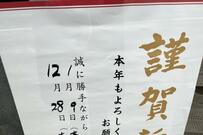 謹賀
本年もよろしく
お願
誠に勝手ながら
12月28日
1月9日